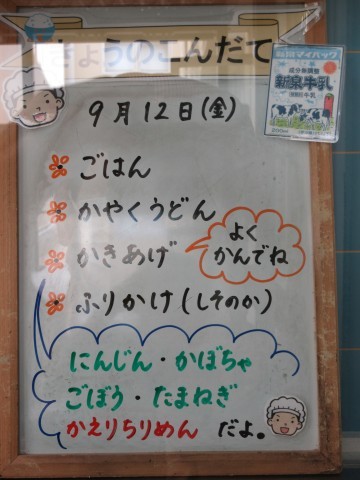 きょうのこんだて
成分無調整
新泉牛乳
9月12日(金)
ごはん
かやくうどん
かきあげ
よく
かんでね
ふりかけ(しそのか)
にんじん・かぼちゃ
ごぼう・たまねぎ
かえりちりめん だよ。